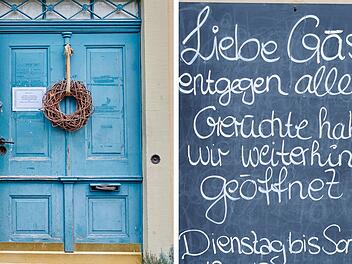 Liebe Gäs
entgegen alle
Gerüchte hab
wir weiterhin
geöffnet
Dienstag bis Son